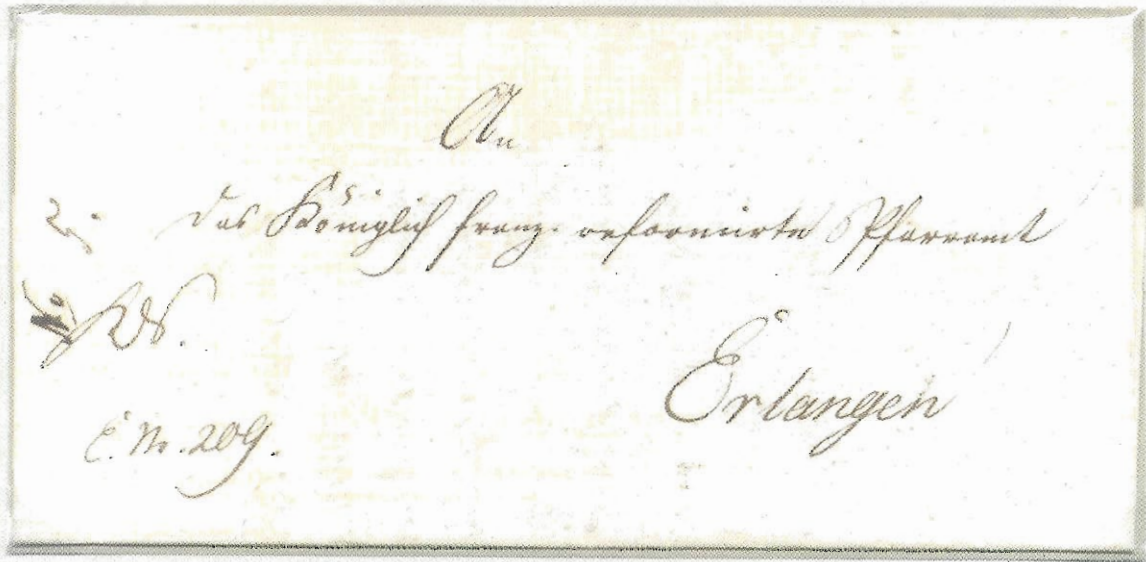 An
das Königlich franz. reformirte Pfarramt
KDS.
Erlangen
E. Nr. 209.